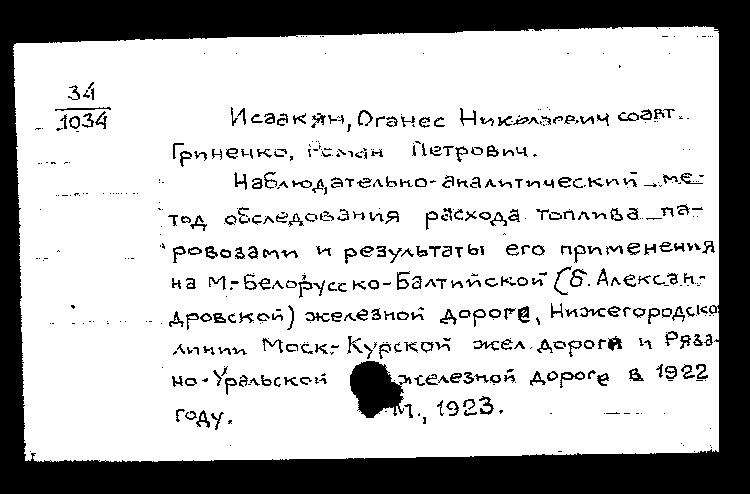 34
1034
Исаакян, Оганес Николаевич соавт.
Гриненко, Роман Петрович.
Наблюдательно-аналитический ме-
тод обследования расхода топлива па-
ровозами и результаты его применения
на М.-Белорусско-Балтийской (б. Алексан-
дровской) железной дороге, Нижегородско
линии Моск.-Курской жел. дороги и Ряза-
но-Уральской железной дороге в 1922
году. М., 1923.